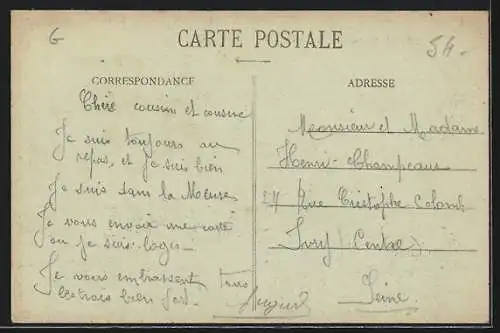 G
CARTE POSTALE
54-
CORRESPONDANCE
ADRESSE
Chère cousin et cousine
Je suis toujours au
repos, et je suis bien
Je suis dans la Meuse
Je vous envoie une carte
ou je suis loger
Je vous embrassent tous
les trois bien fort.
Monsieur et Madame
Henri Champeaux
Rue Cristophe Colomb
Ivry (Centre)
Seine.